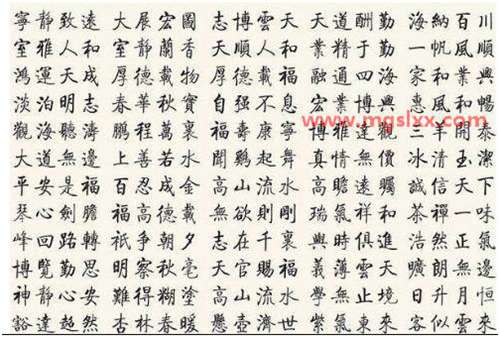 寧靜致遠 大展宏圖 志博雲天 天道酬勤 海納百川
室雅人和 室靜蘭香 順天人和 業精于勤 一帆風順
鴻運天成 厚德載物 厚德載福 融通四海 家和業興
淡泊明志 春華秋實 自强不息 宏業博興 惠風和暢
觀海聽濤 鵬程萬裏 福壽康寧 博雅達觀 三羊開泰
大道無邊 上善若水 聞鷄起舞 真情無價 冰清玉潔
平安是福 百忍成金 高山流水 高瞻遠矚 誠信天下
琴心劍膽 福高德載 無欲則剛 瑞氣祥和 茶禪一味
峰回路轉 祇爭朝夕 志在千裏 與時俱進 浩然正氣
博覽勤思 明察秋毫 天官賜福 義薄雲天 曠朗無邊
神靜心安 難得糊塗 高山流水 學無止境 日升月恒
豁達超然 杏林春暖 懸壺濟世 紫氣東來 客似雲來
www.mgslxx.com